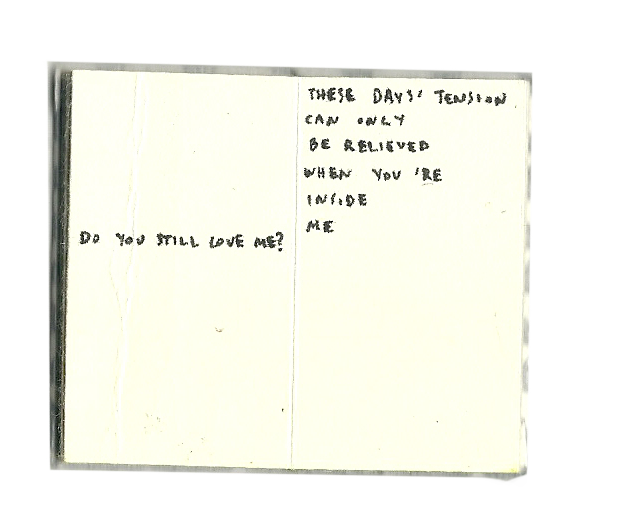 DO YOU STILL LOVE ME?
THESE DAYS' TENSION
CAN ONLY
BE RELIEVED
WHEN YOU'RE
INSIDE
ME